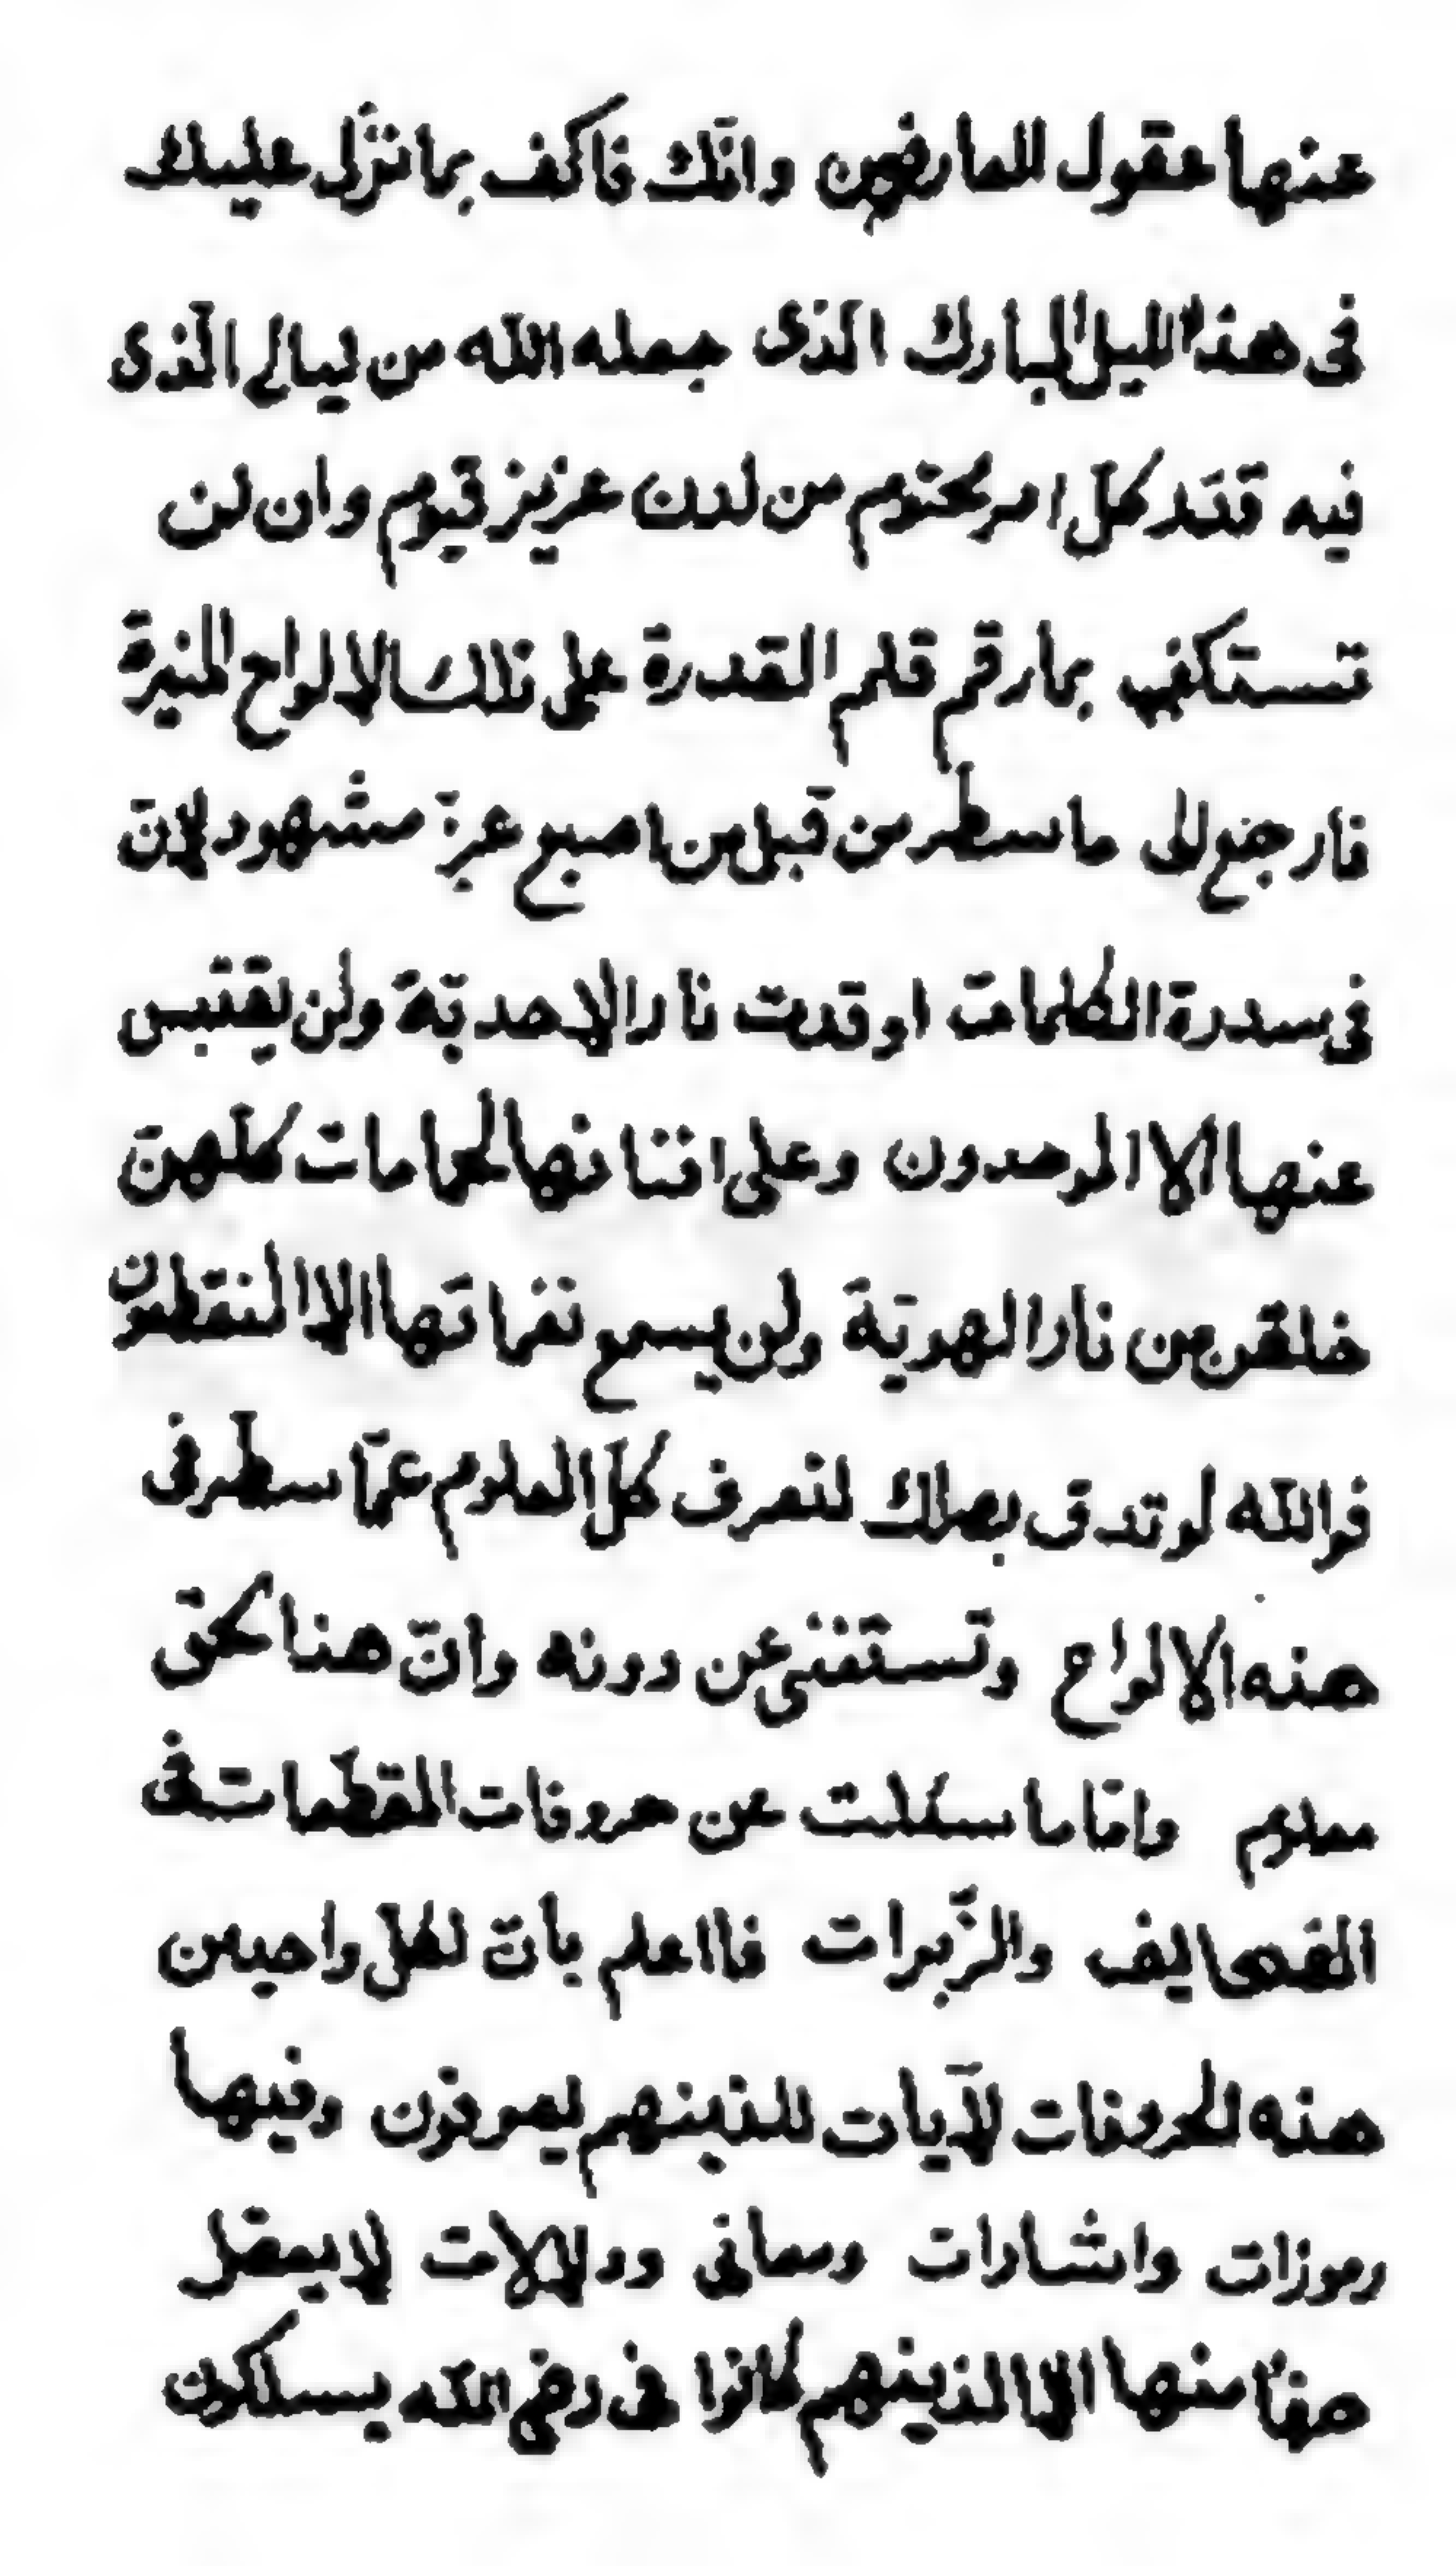 عنها عقول العارفين وانّك فاكف بما نزّل عليك
فى هذا الليل المبارك الّذى جعله اللّه من ليالى الّذى
فيه قدّر كلّ امر محتوم من لدن عزيز قيوم وان لن
تستكفى بما رقم قلم القدرة على تلك الالواح المنيرة
فارجع الى ما سطر من قبل من اصبع عزّ مشهود لانّ
فى سدرة الكلمات اوقدت نار الاحديّة ولن يقتبس
عنها الا الموحدون وعلى افنانها لحمامات كلّهنّ
خلقن من نار الهويّة ولن يسمع نغماتها الا المنقطعون
فواللّه لو تدق بصرك لتعرف كلّ العلوم عمّا سطر فى
هذه الالواح وتستغنى عن دونه وانّ هذا لحقّ
معلوم وامّا ما سئلت عن حروفات المقطّعات فى
الصحايف والزّبرات فااعلم بانّ لكلّ واحد من
هذه الحروفات لآيات للذينهم يعرفون وفيها
رموزات واشارات ومعانى ودلالات لا يعقل
حرفاً منها الا الذينهم كانوا فى رضى اللّه يسلكون